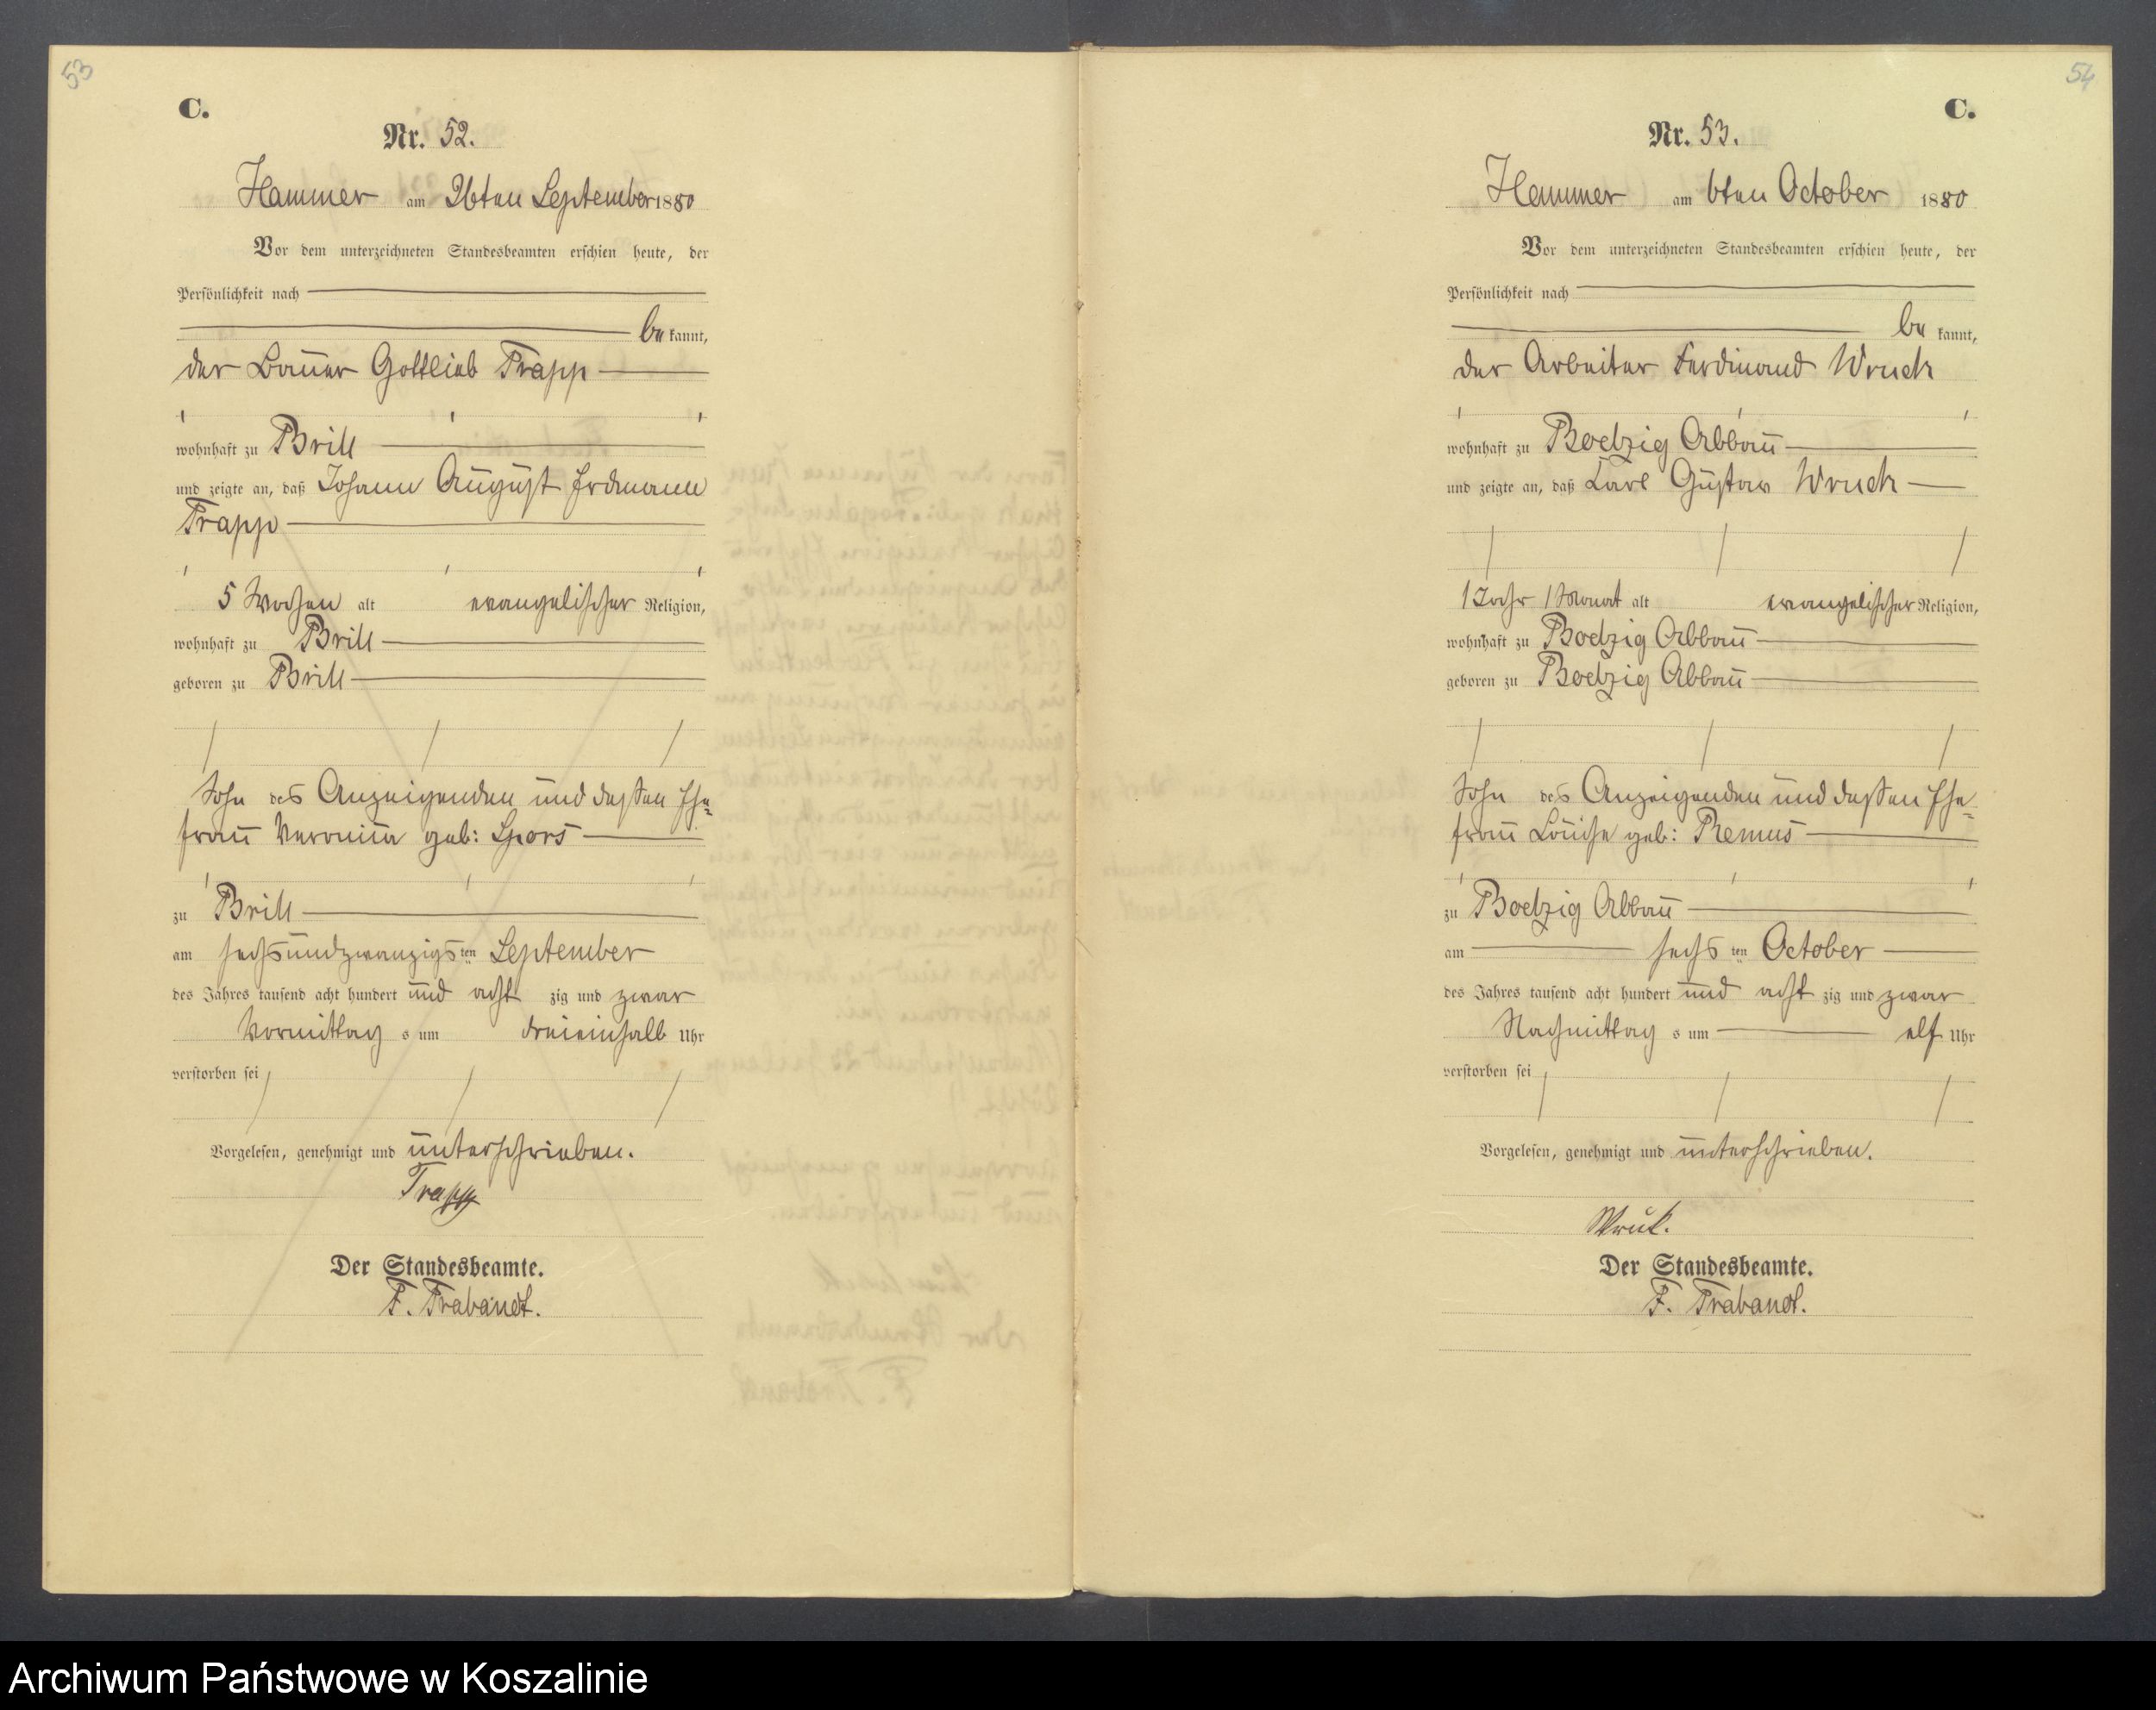 53
C.
Nr. 52.
Hammer am 26ten September 1880
Vor dem unterzeichneten Standesbeamten erschien heute, der
Persönlichkeit nach
be kannt,
der Bauer Gottlieb Trapp
wohnhaft zu Brill
und zeigte an, daß Johann August Erdmann
Trapp
5 Wochen alt evangelischer Religion,
wohnhaft zu Brill
geboren zu Brill
Sohn des Anzeigenden und dessen Ehe-
frau geb: Spors
zu Brill
am sechsundzwanzigs ten September
des Jahres tausend acht hundert und acht zig und zwar
Vormittag s um dreieinhalb Uhr
verstorben sei
Vorgelesen, genehmigt und unterschrieben.
Trapp
Der Standesbeamte.
F. Trabandt.
54
C.
Nr. 53.
Hammer am 6ten October 1880
Vor dem unterzeichneten Standesbeamten erschien heute, der
Persönlichkeit nach
be kannt,
der Arbeiter Ferdinand Wruck
wohnhaft zu Boetzig Abbau
und zeigte an, daß Carl Gustav Wruck
1 Jahr 1 Monat alt evangelischer Religion,
wohnhaft zu Boetzig Abbau
geboren zu Boetzig Abbau
Sohn des Anzeigenden und dessen Ehe-
frau Louise geb: Remus
zu Boetzig Abbau
am sechs ten October
des Jahres tausend acht hundert und acht zig und zwar
Nachmittag s um elf Uhr
verstorben sei
Vorgelesen, genehmigt und unterschrieben.
Wruk.
Der Standesbeamte.
F. Trabandt.
Archiwum Państwowe w Koszalinie